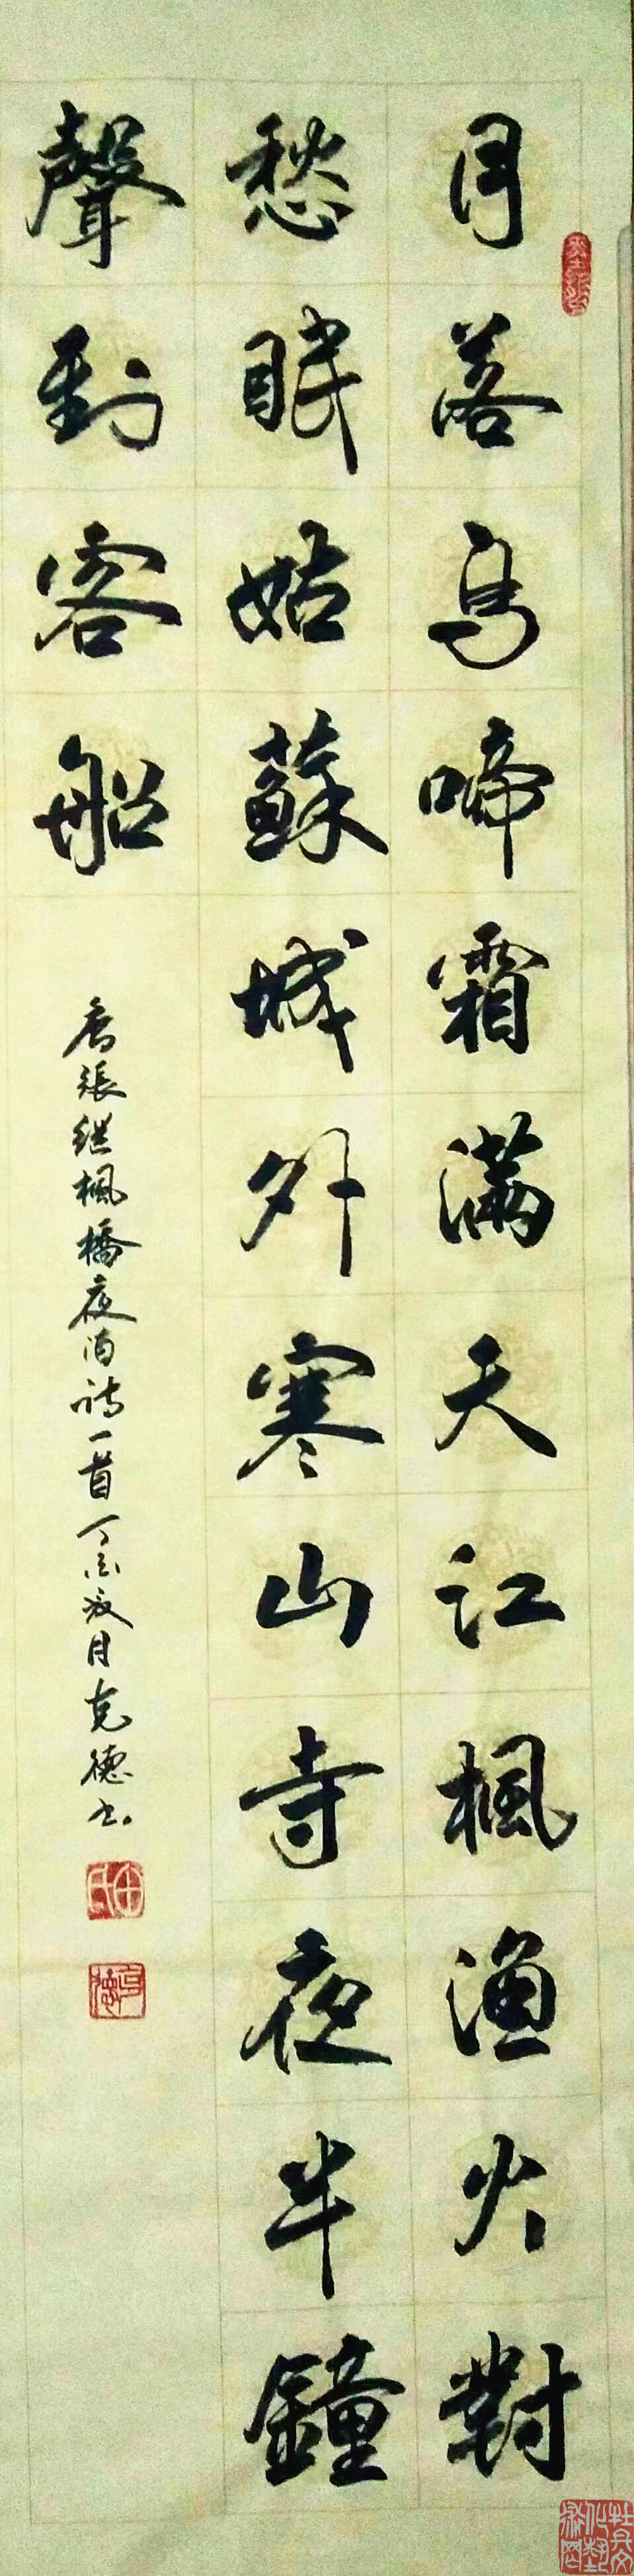 月落烏啼霜满天江楓渔火對
愁眠姑蘇城外寒山寺夜半鐘
聲到客船
唐張继楓橋夜泊诗一首丁酉夏月克德书